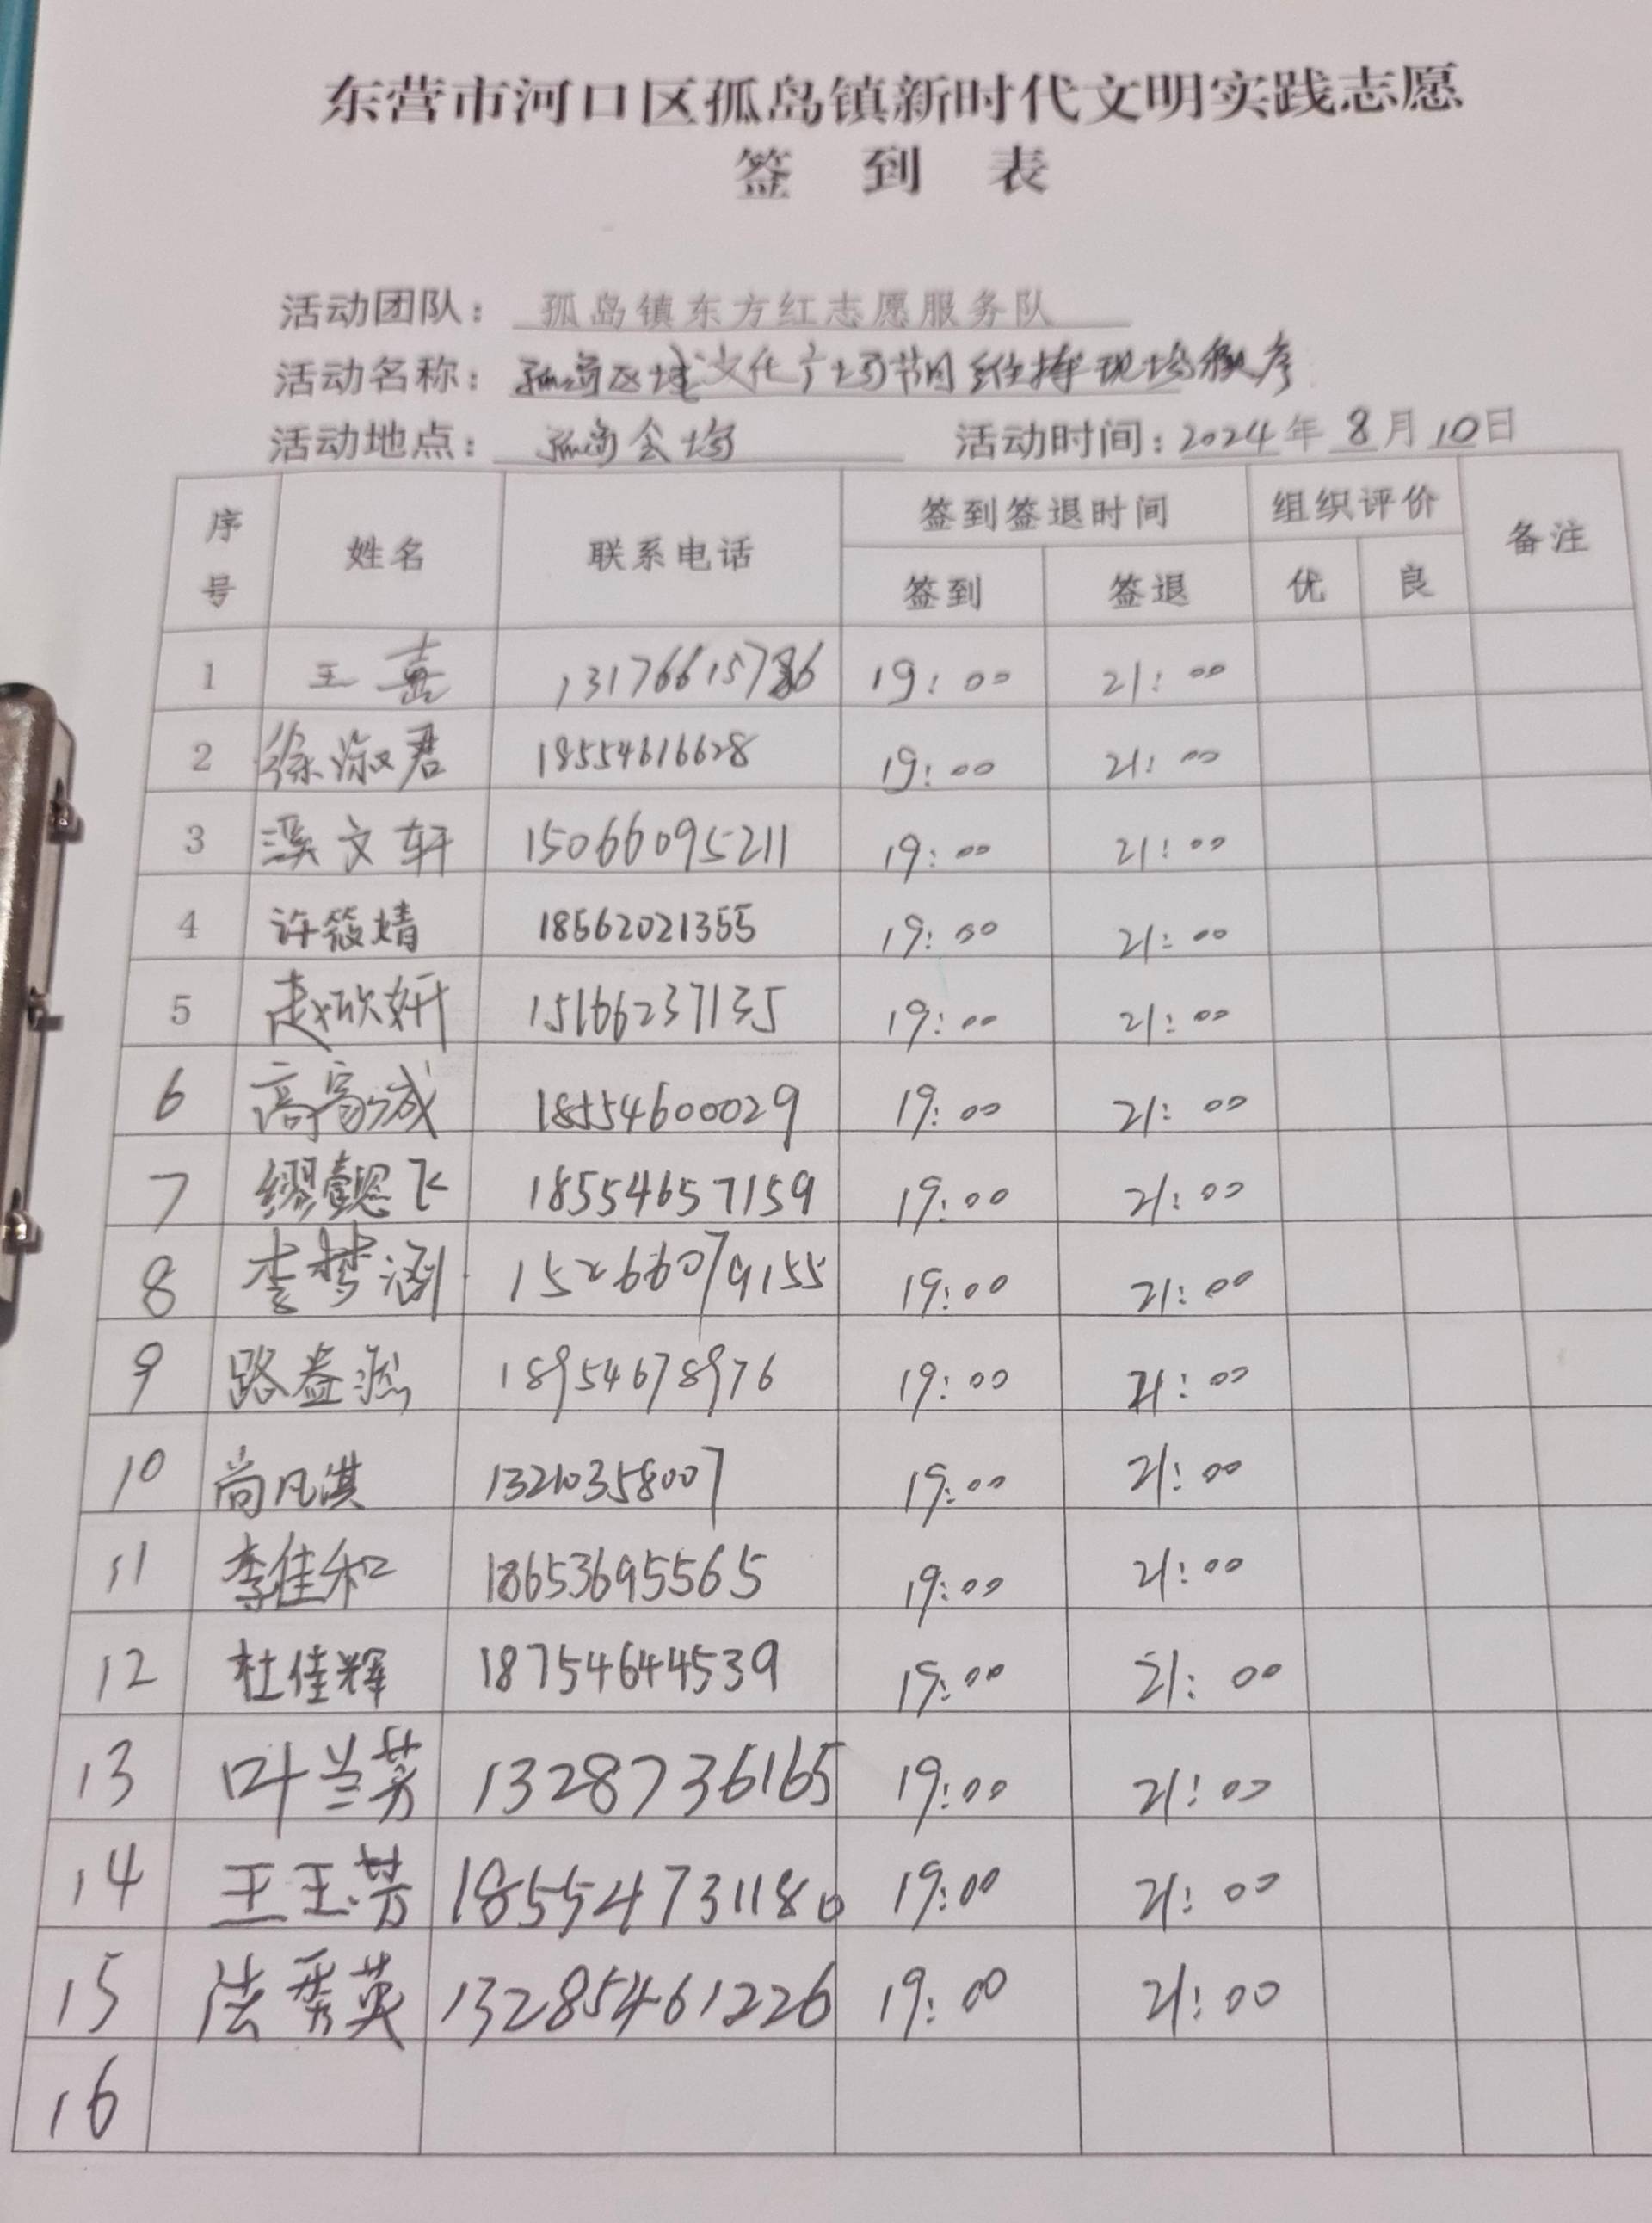 东营市河口区孤岛镇新时代文明实践志愿
签到表
活动团队：孤岛镇东方红志愿服务队
活动名称：孤岛区域文化广场节目维持现场秩序
活动地点：孤岛会场 活动时间：2024年8月10日
序号 姓名 联系电话 签到签退时间 组织评价 备注
签到 签退 优 良
1 王嘉 13176615786 19:00 21:00
2 徐淑君 18554616628 19:00 21:00
3 溪文轩 15066095211 19:00 21:00
4 许筱婧 18562021355 19:00 21:00
5 赵欣妍 15166237135 19:00 21:00
6 高高成 18554600029 19:00 21:00
7 缪懿飞 18554657159 19:00 21:00
8 李梦涵 15266079155 19:00 21:00
9 路益 18954678976 19:00 21:00
10 尚凡淇 13210358007 19:00 21:00
11 李佳和 18653695565 19:00 21:00
12 杜佳辉 18754644539 19:00 21:00
13 叶兰芳 13287736165 19:00 21:00
14 王玉芳 18554731180 19:00 21:00
15 法秀英 13285461226 19:00 21:00
16